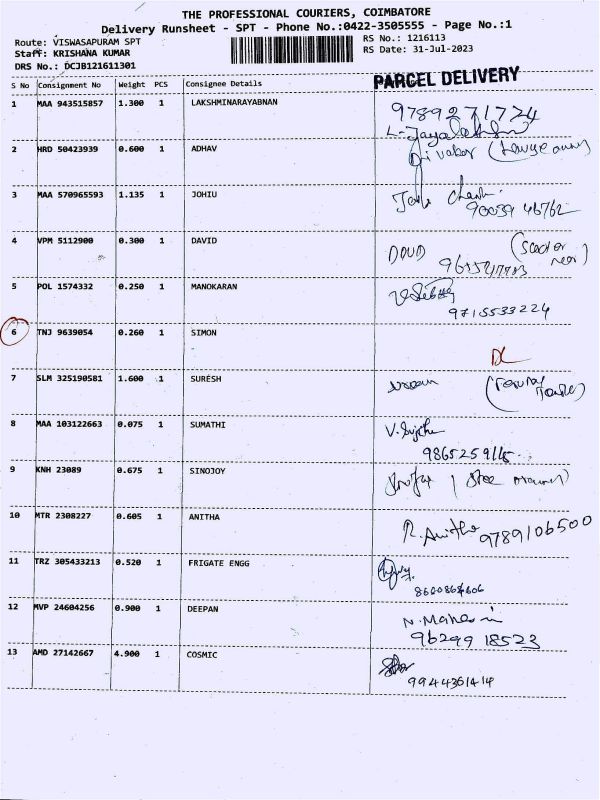 THE PROFESSIONAL COURIERS, COIMBATORE
Delivery Runsheet - SPT - Phone No.:0422-3505555 - Page No.:1
Route: VISWASAPURAM SPT
RS No.: 1216113
Staff: KRISHANA KUMAR
RS Date: 31-Jul-2023
DRS No.: DCJB121611301
PARCEL DELIVERY
S No Consignment No Weight PCS Consignee Details
1 MAA 943515857 1.300 1 LAKSHMINARAYABNAN 9789271774
2 HRD 50423939 0.600 1 ADHAV
3 MAA 570965593 1.135 1 JOHIU
90039 46762
4 VPM 5112900 0.300 1 DAVID
5 POL 1574332 0.250 1 MANOKARAN
9715533224
6 TNJ 9639054 0.260 1 SIMON
DL
7 SLM 325190581 1.600 1 SURESH
8 MAA 103122663 0.075 1 SUMATHI
9 KNH 23089 0.675 1 SINOJOY
10 MTR 2308227 0.605 1 ANITHA R. Anitha 9789106500
11 TRZ 305433213 0.520 1 FRIGATE ENGG
12 MVP 24604256 0.900 1 DEEPAN
96299 18523
13 AMD 27142667 4.900 1 COSMIC
9944361414